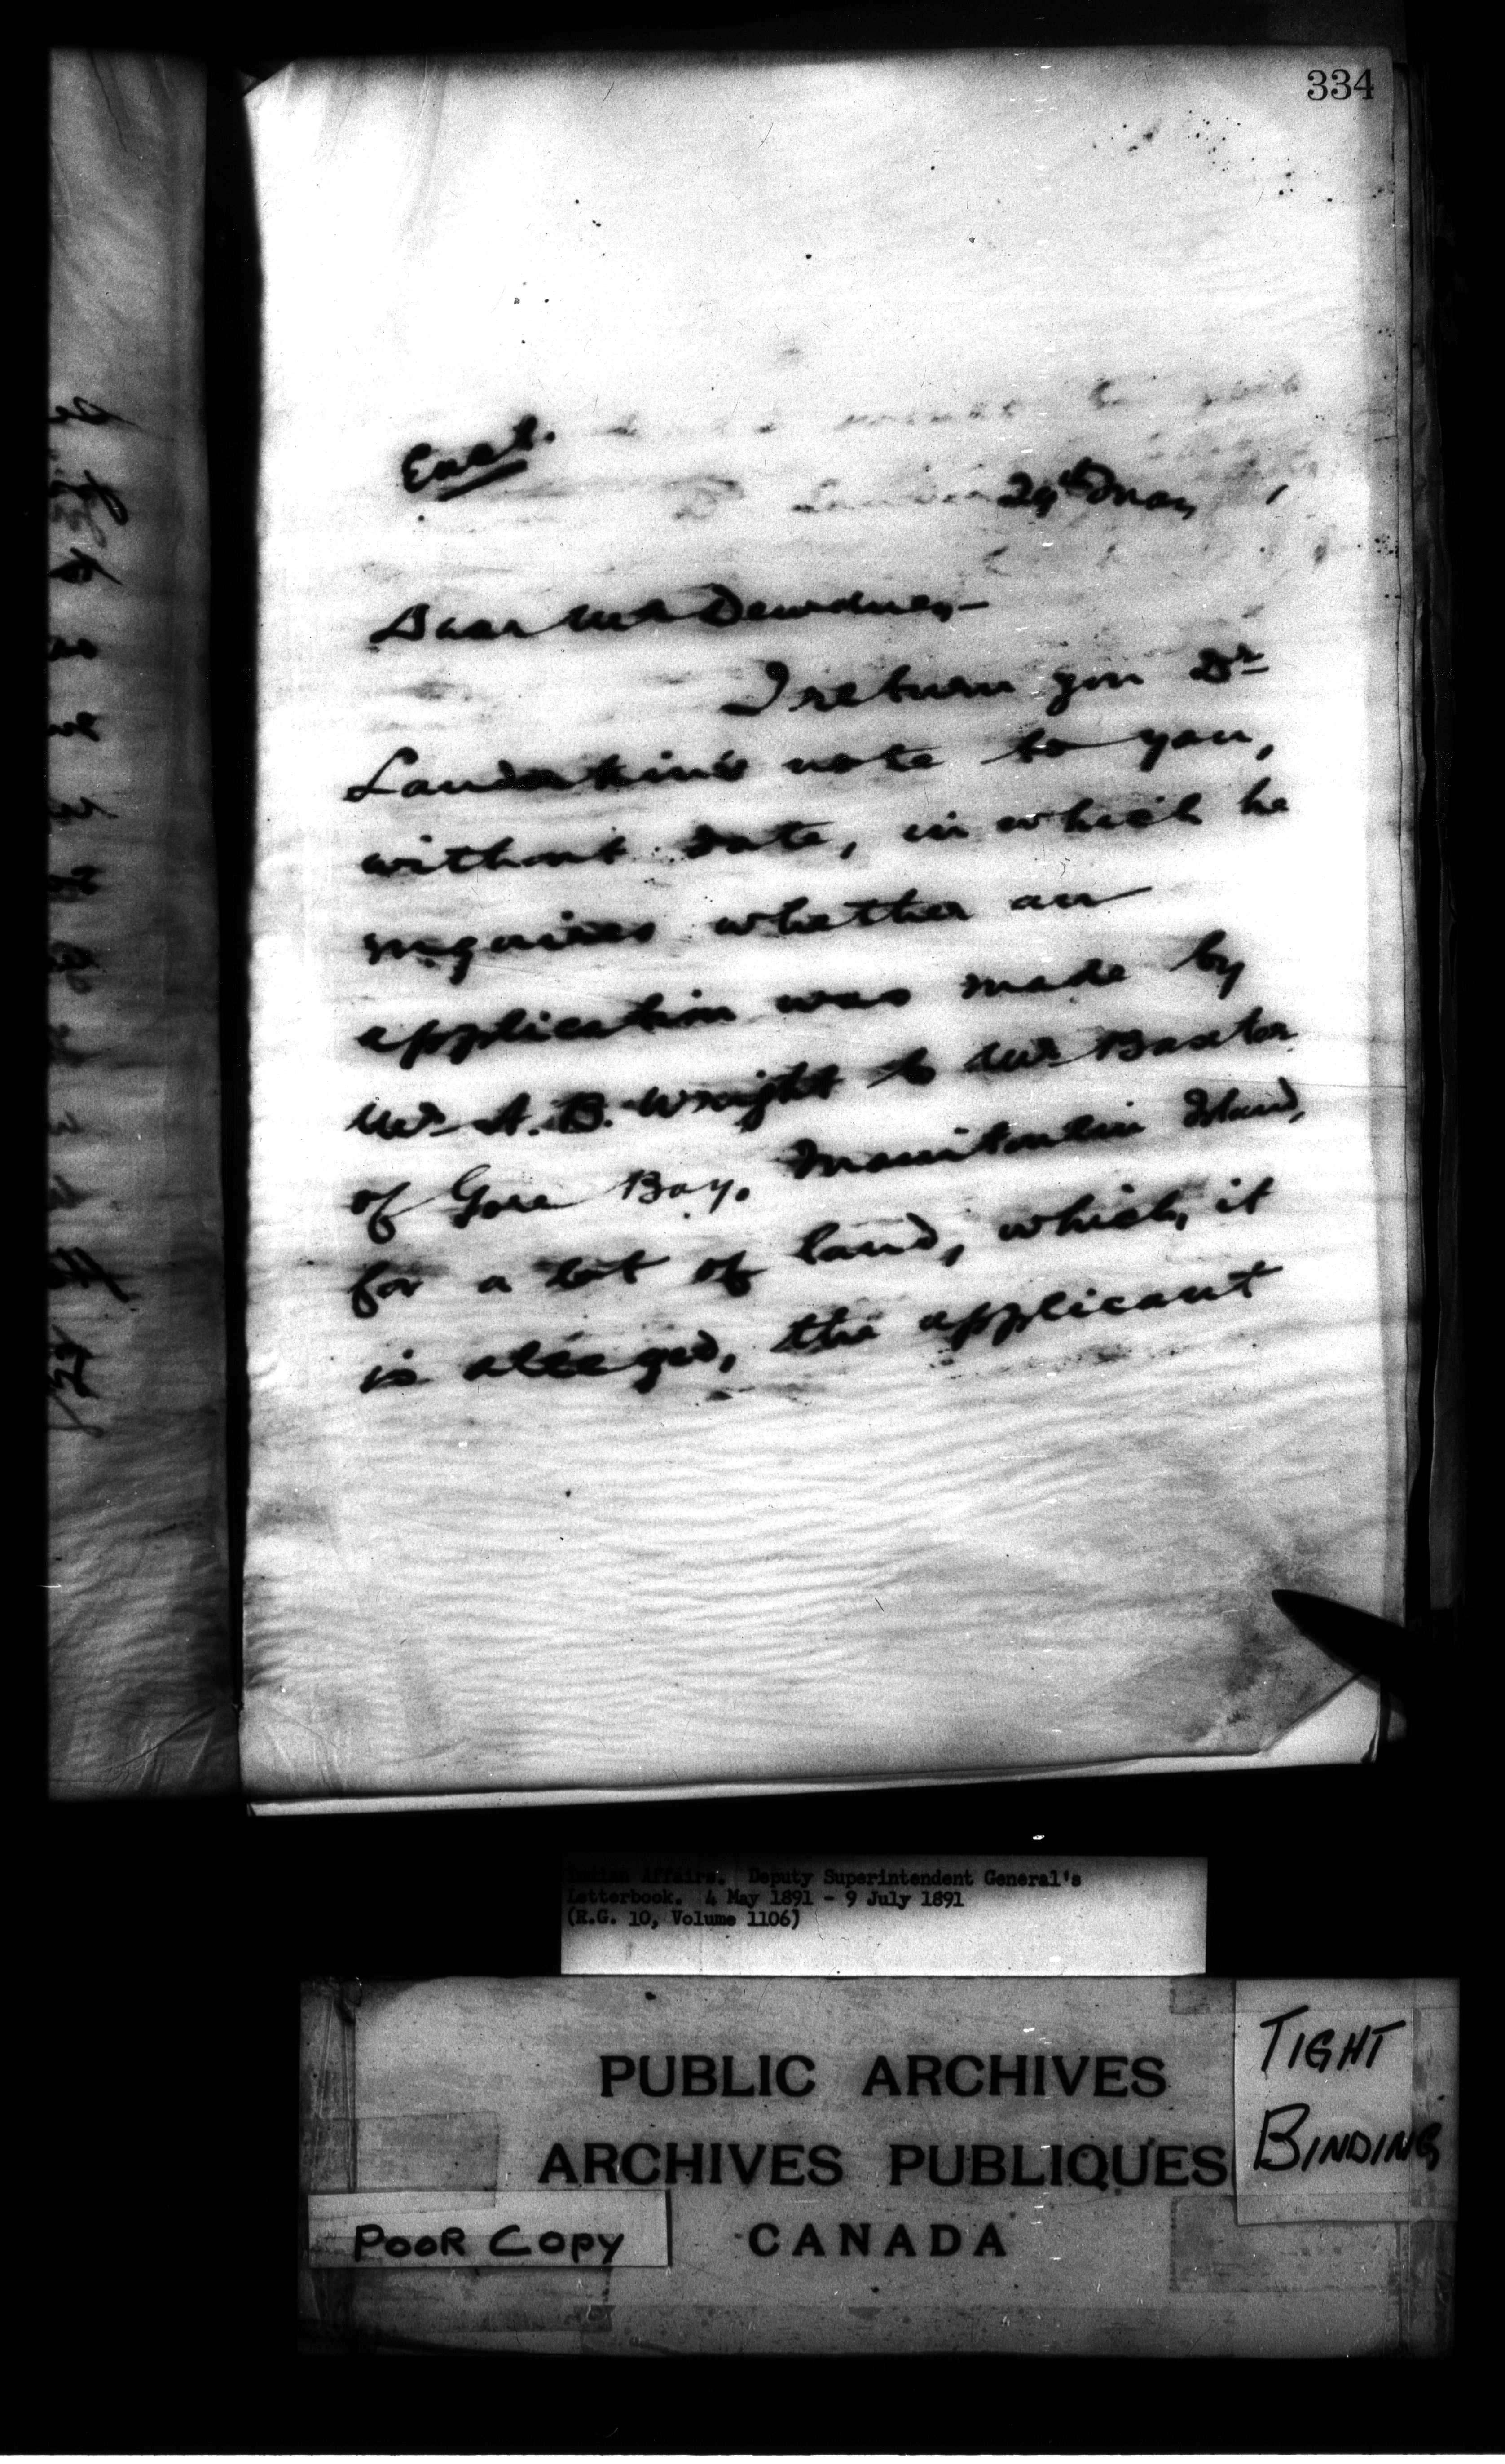 334
Encl.
29th May
Dear Mr Dewdney,—
I return you Dr
Landerkin's note to you,
without date, in which he
inquires whether an
application was made by
Mr A. B. Wright to Mr Baxter
of Gore Bay, Manitoulin Island,
for a lot of land, which, it
is alleged, the applicant
Indian Affairs. Deputy Superintendent General's
Letterbook. 4 May 1891 - 9 July 1891
(R.G. 10, Volume 1106)
PUBLIC ARCHIVES
ARCHIVES PUBLIQUES
CANADA
TIGHT
BINDING
POOR COPY